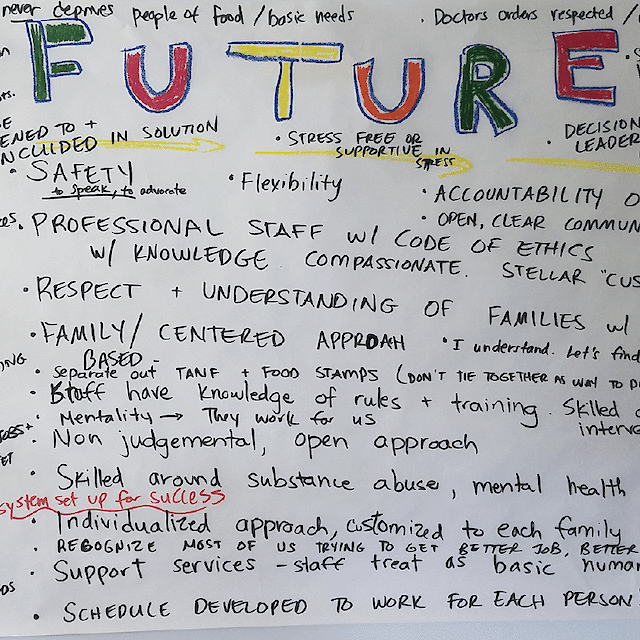 never deprives people of food / basic needs
• Doctors orders respected /
FUTURE
ENED TO +
INCLUDED IN SOLUTION
• STRESS FREE OR
SUPPORTIVE IN
STRESS
• DECISION
LEADER
• SAFETY
to speak, to advocate
• Flexibility
• ACCOUNTABILITY O
• OPEN, CLEAR COMMUN
• PROFESSIONAL STAFF w/ CODE OF ETHICS
w/ KNOWLEDGE COMPASSIONATE. STELLAR "CUS
• RESPECT + UNDERSTANDING OF FAMILIES w/
• FAMILY/ CENTERED APPROAH
BASED -
• I understand. Let's find
ING
• separate out TANF + FOOD STAMPS (DON'T TIE TOGETHER AS WAY TO
• Staff have knowledge of rules + training. Skilled
interve
• Mentality → They work for us
• Non judgemental, open approach
ET
• Skilled around substance abuse, mental health
system set up for success
• Individualized approach, customized to each family
• RECOGNIZE MOST OF US TRYING TO GET BETTER JOB, BETTER
• Support services - staff treat as basic human
DS
• SCHEDULE DEVELOPED TO WORK FOR EACH PERSON